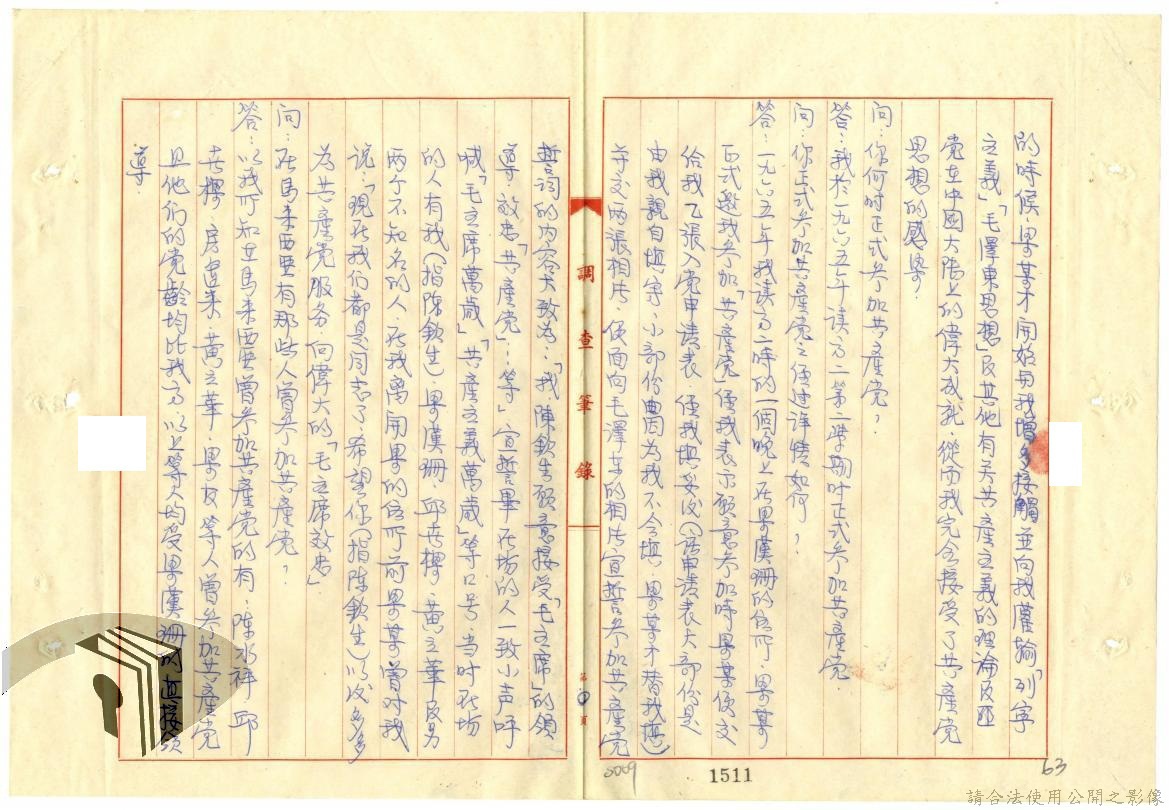 的時候,畢某才開始與我增多接觸並向我灌輸「列宁
主义」「毛澤東思想」及其他有关共產主義的理論及匪
党在中國大陸上的偉大成就,從而我完全接受了共產党
思想的感染。
问:你何时正式參加共產党?
答:我於一九六五年读高二第二學期时正式參加共產党。
问:你正式參加共產党之經过详情如何?
答:一九六五年我读高二時的一個晚上,在畢漢珊的住所,畢某
正式邀我參加「共產党」經我表示願意參加時畢某便交
给我乙張入党申请表,經我填妥後(该申请表大部份是
由我親自填写,小部份典因为我不会填,畢某才替我填)
并交两張相片,便面向毛澤东的相片宣誓參加共產党
誓词的内容大致為:「我陳欽生願意接受「毛主席」的領
導,效忠「共產党」…等」宣誓畢在场的人一致小声呼
喊「毛主席萬歲」「共產主義萬歲」等口号,当时在场
的人有我(指陳欽生)畢漢珊、邱世樑、黃立華及另
两个不知名的人,在我离開畢的住所前畢某曾对我
说:「现在我们都是同志了,希望你(指陳欽生)以後多多
為共產党服务,向偉大的「毛主席效忠」
问:在馬来西亞有那些人曾參加共產党?
答:以我所知在馬来西亞曾參加共產党的有:陳水祥、邱
世樑、房進来、黃立華、畢友等人曾參加共產党
且他们的党齡均比我高,以上等人均受畢漢珊的直接領
導。
調查筆錄
第 頁
1511
5009
63
請合法使用公開之影像